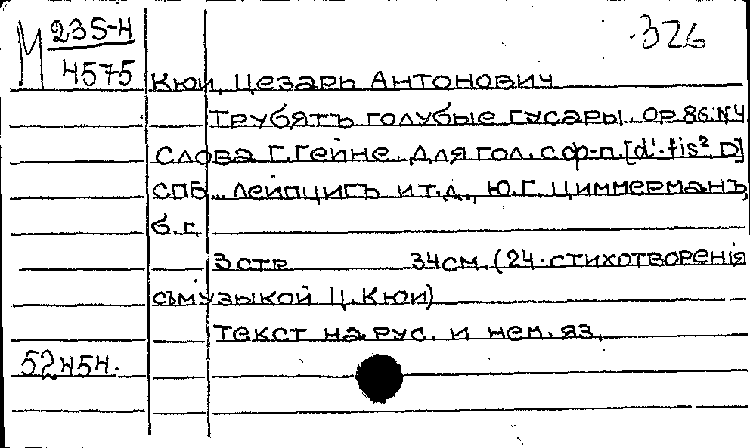 М 235-4
4575
326
Кюи, Цезарь Антонович
Трубятъ голубые гусары. Ор 86. N4
Слова Г. Гейне. Для гол. с ф-п. [d'-fis² D]
СПБ., Лейпцигъ и т.д., Ю.Г. Циммерманъ,
б.г.
3 стр 34 см. (24 стихотворенiя
съ музыкой Ц. Кюи)
Текст на рус. и нем. яз.